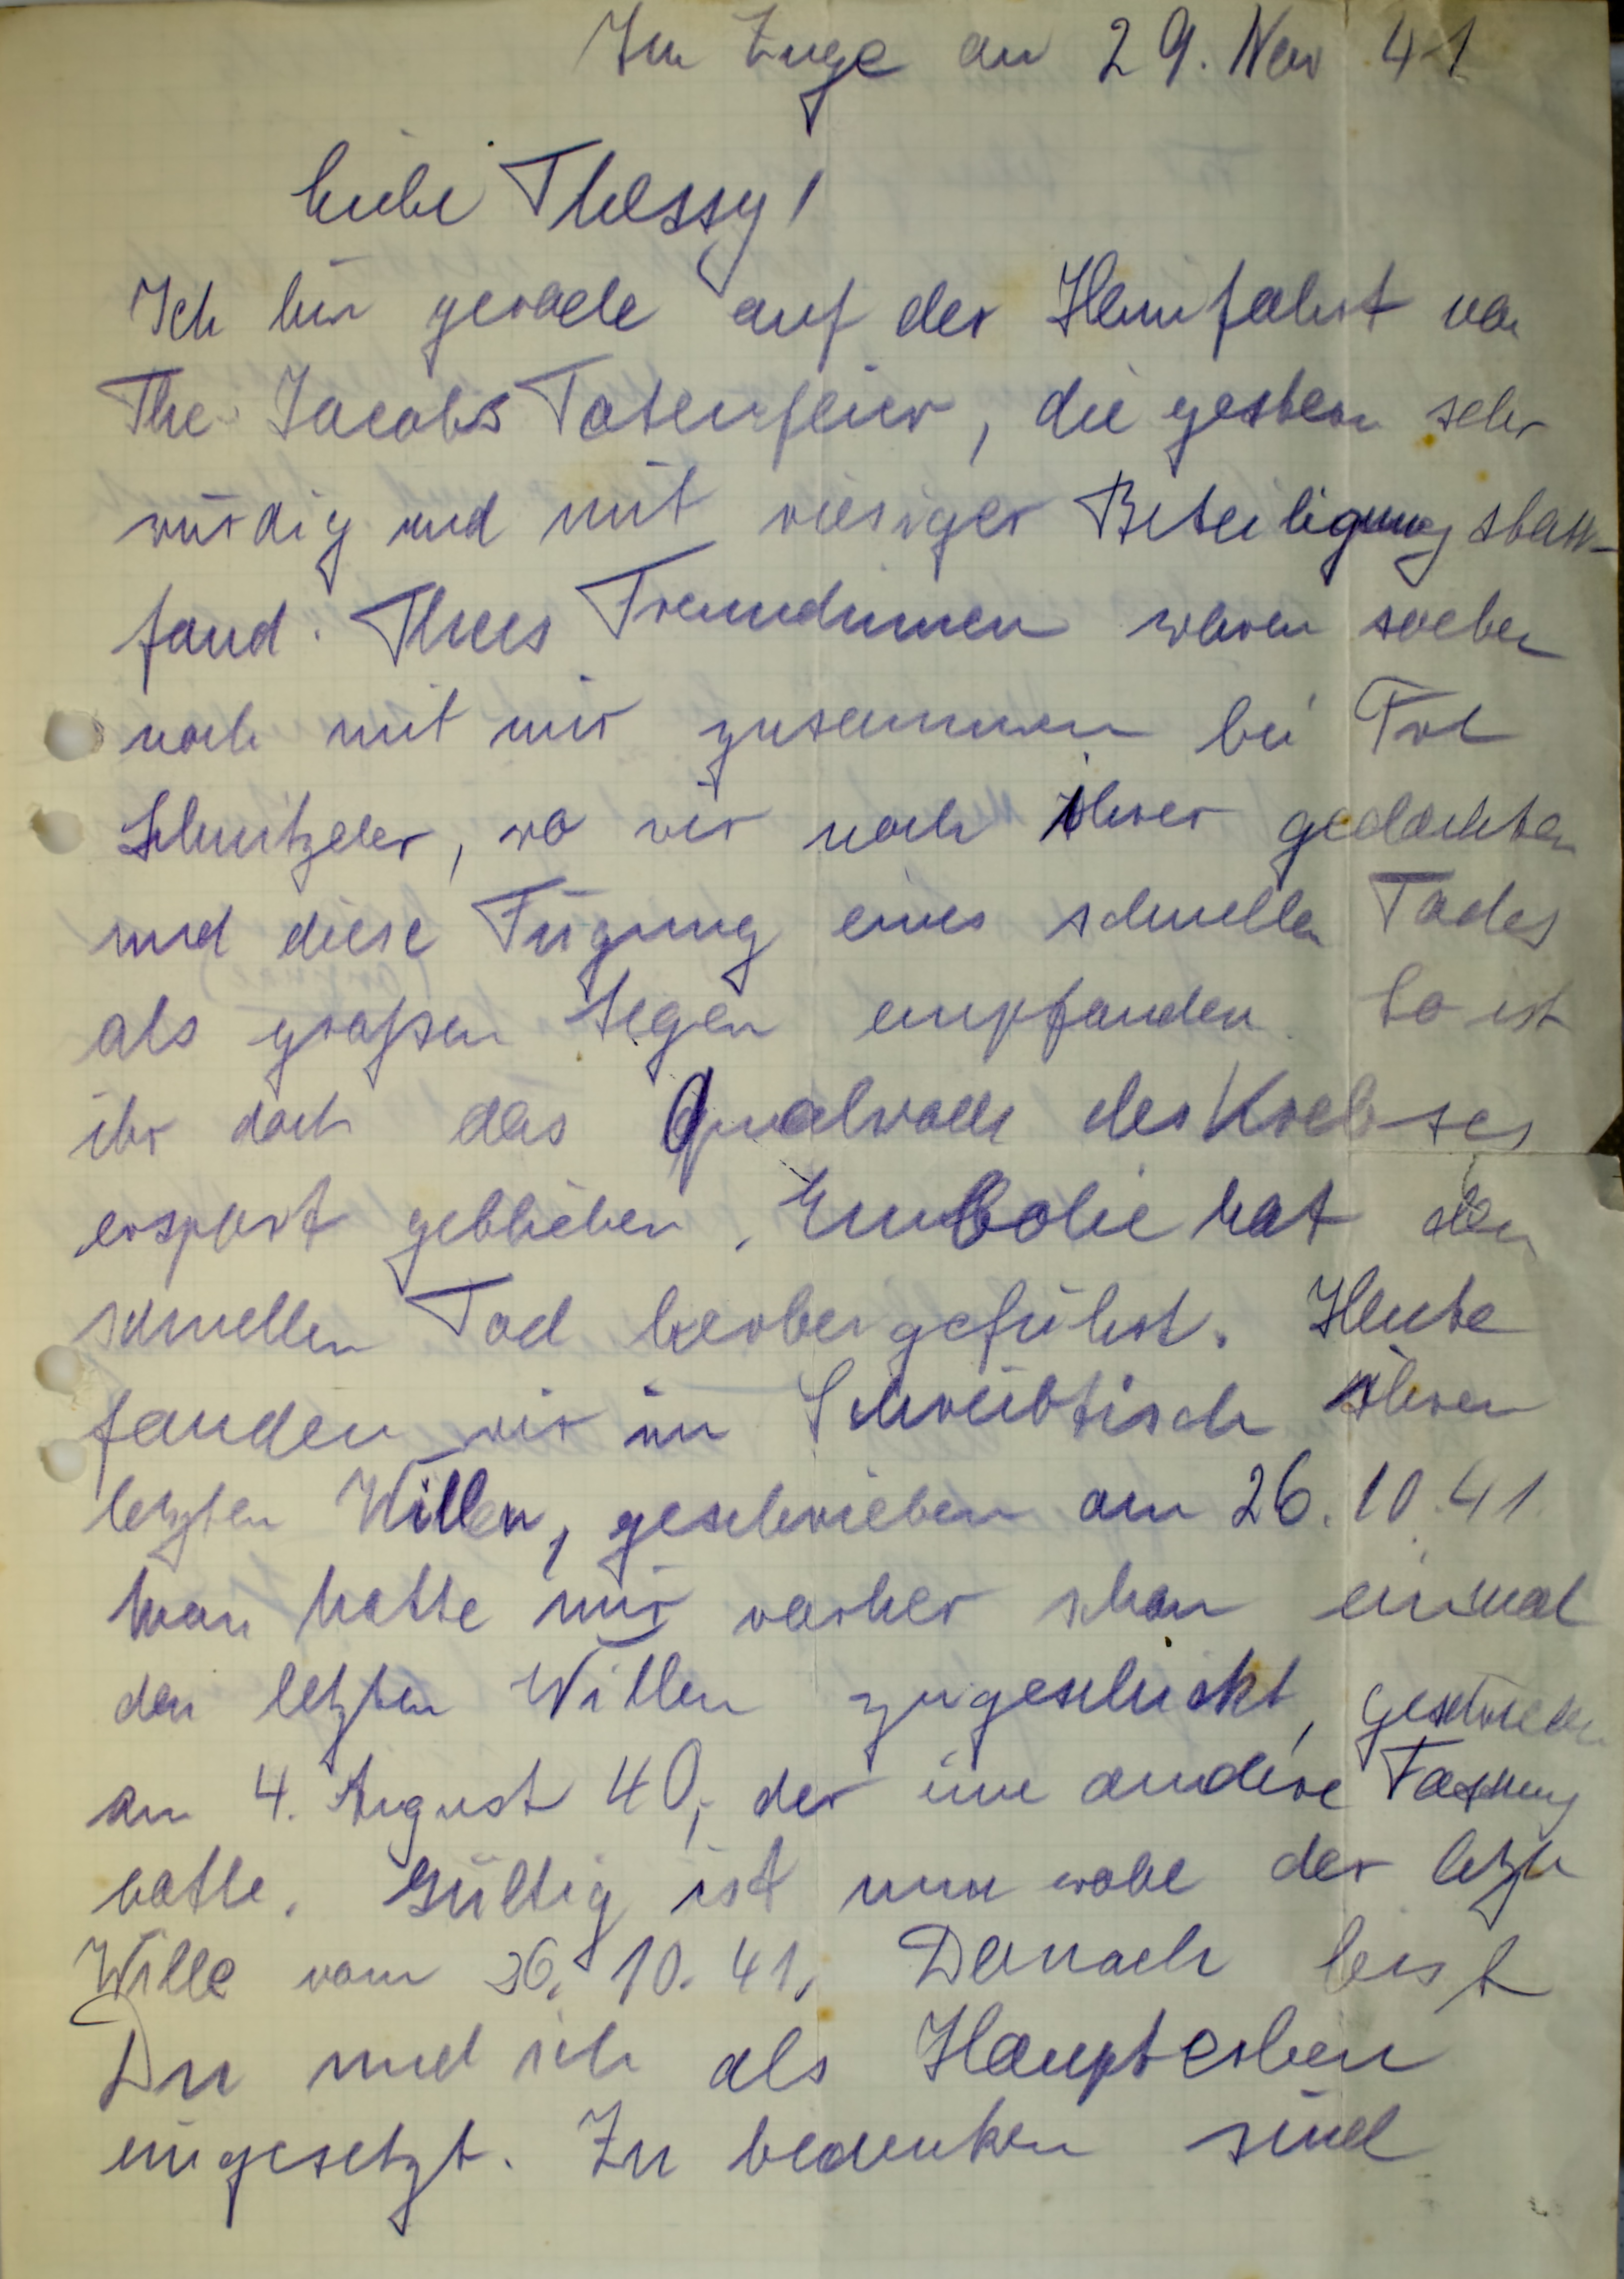 Im Zuge am 29. Nov 41
Liebe Thessy!
Ich bin gerade auf der Heimfahrt von
The Jacobs Totenfeier, die gestern sehr
würdig und mit riesiger Beteiligung statt-
fand. Thees Freundinnen waren soeben
noch mit mir zusammen bei Frl
Schnitzeler, wo wir noch ihrer gedachten
und diese Fügung eines schnellen Todes
als großen Segen empfanden. So ist
ihr doch das Qualvolle des Krebses
erspart geblieben. Embolie hat den
schnellen Tod herbeigeführt. Heute
fanden wir im Schreibtisch ihren
letzten Willen, geschrieben am 26.10.41.
Man hatte mir vorher schon einmal
den letzten Willen zugeschickt, geschrieben
am 4. August 40, der eine andere Fassung
hatte. Gültig ist nun wohl der letzte
Wille vom 26.10.41. Danach bist
Du und ich als Haupterben
eingesetzt. Zu bedenken sind